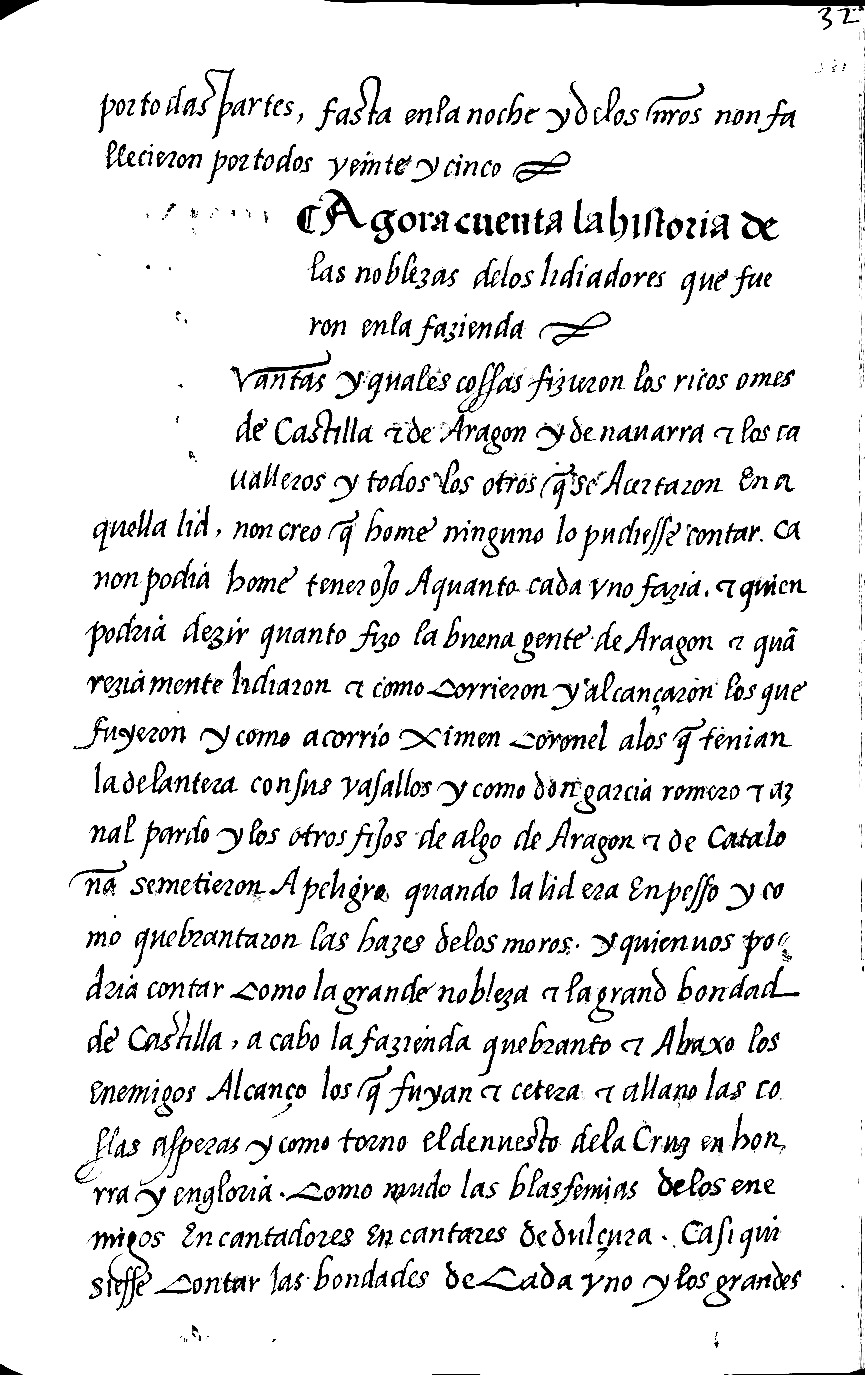 32
por todas partes, fasta en la noche y de los nr̃os non fa
llecieron por todos veinte y cinco
¶ Agora cuenta la historia de
las noblezas delos lidiadores que fue
ron enla fazienda
Vantas y quales cossas fizieron los ricos omes
de Castilla ⁊ de Aragon y de nauarra ⁊ los ca
ualleros y todos los otros q̃ se Acertaron En a
quella lid, non creo q̃ home ninguno lo pudiesse contar. ca
non podia home tener ojo Aquanto cada vno fazia. ⁊ quien
podria dezir quanto fizo la buena gente de Aragon ⁊ quã
reziamente lidiaron ⁊ como Corrieron y alcançaron los que
fuyeron y como acorrio Ximen Coronel alos q̃ tenian
la delantera con sus vasallos y como don garcia romero ⁊ az
nal pardo y los otros fijos de algo de Aragon ⁊ de Catalo
ña se metieron A peligro quando la lid era En pesso y co
mo quebrantaron las hazes delos moros. y quien uos po
dria contar Como la grande nobleza ⁊ la grand bondad
de Castilla, a cabo la fazienda quebranto ⁊ Abaxo los
Enemigos Alcanço los q̃ fuyan ⁊ cetera ⁊ allano las co
ssas asperas y como torno el denuesto dela Cruz en hon
rra y en gloria. Como mudo las blasfemias delos ene
migos Encantadores En cantares de dulçura. Ca si qui
siesse Contar las bondades de Cada vno y los grandes